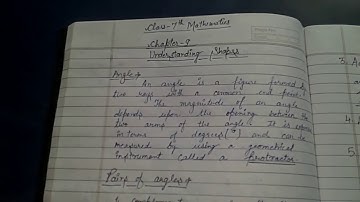 Class-7th Mathematics
Chapter-9
Understanding Shapes
Angle→
An angle is a figure formed by
two rays with a common end point.
The magnitude of an angle
depends upon the opening between the
two arms of the angle. It is expressed
in terms of degrees (°) and can be
measured by using a geometrical
instrument called a protractor.
Pairs of angles→
3.
4.
5